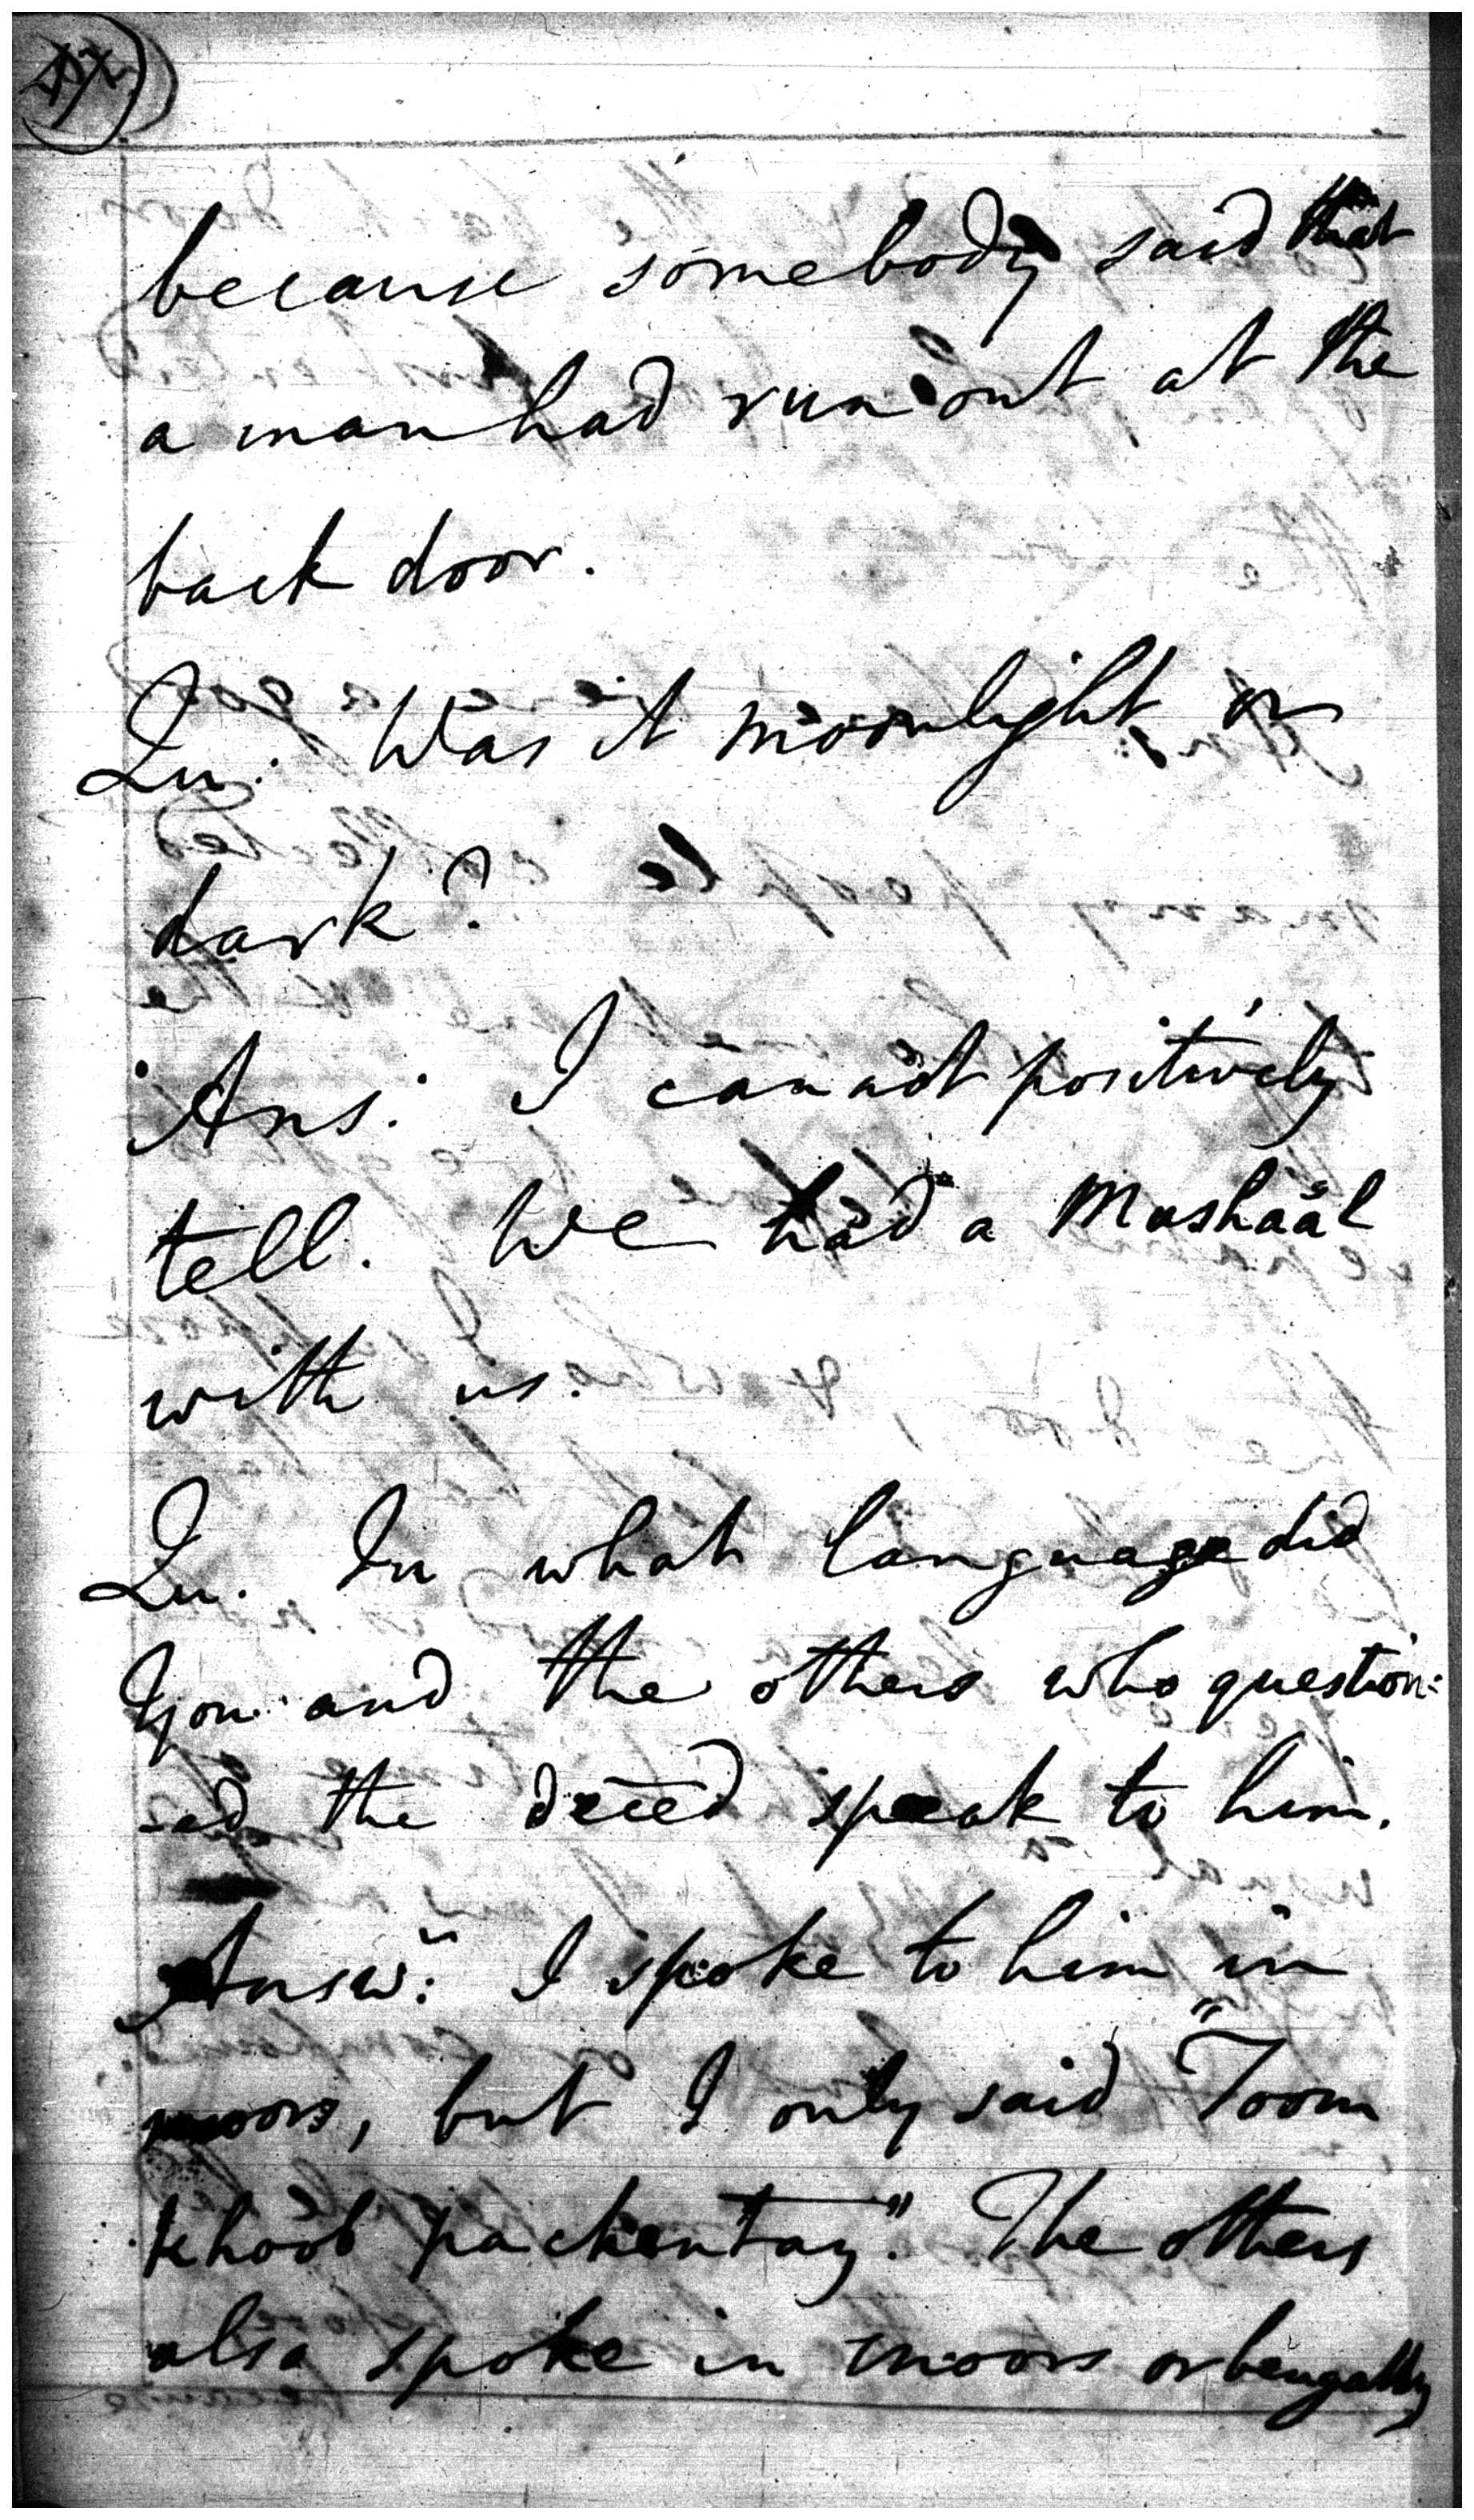 because somebody said that
a man had run out at the
back door.
Qu: Was it moonlight or
dark?
Ans: I cannot positively
tell. We had a Mashaal
with us.
Qu. In what language did
you and the others who question=
=ed the deced speak to him.
Answ: I spoke to him in
moors, but I only said "Toom
khoob pachentay." The others
also spoke in moors or bengally